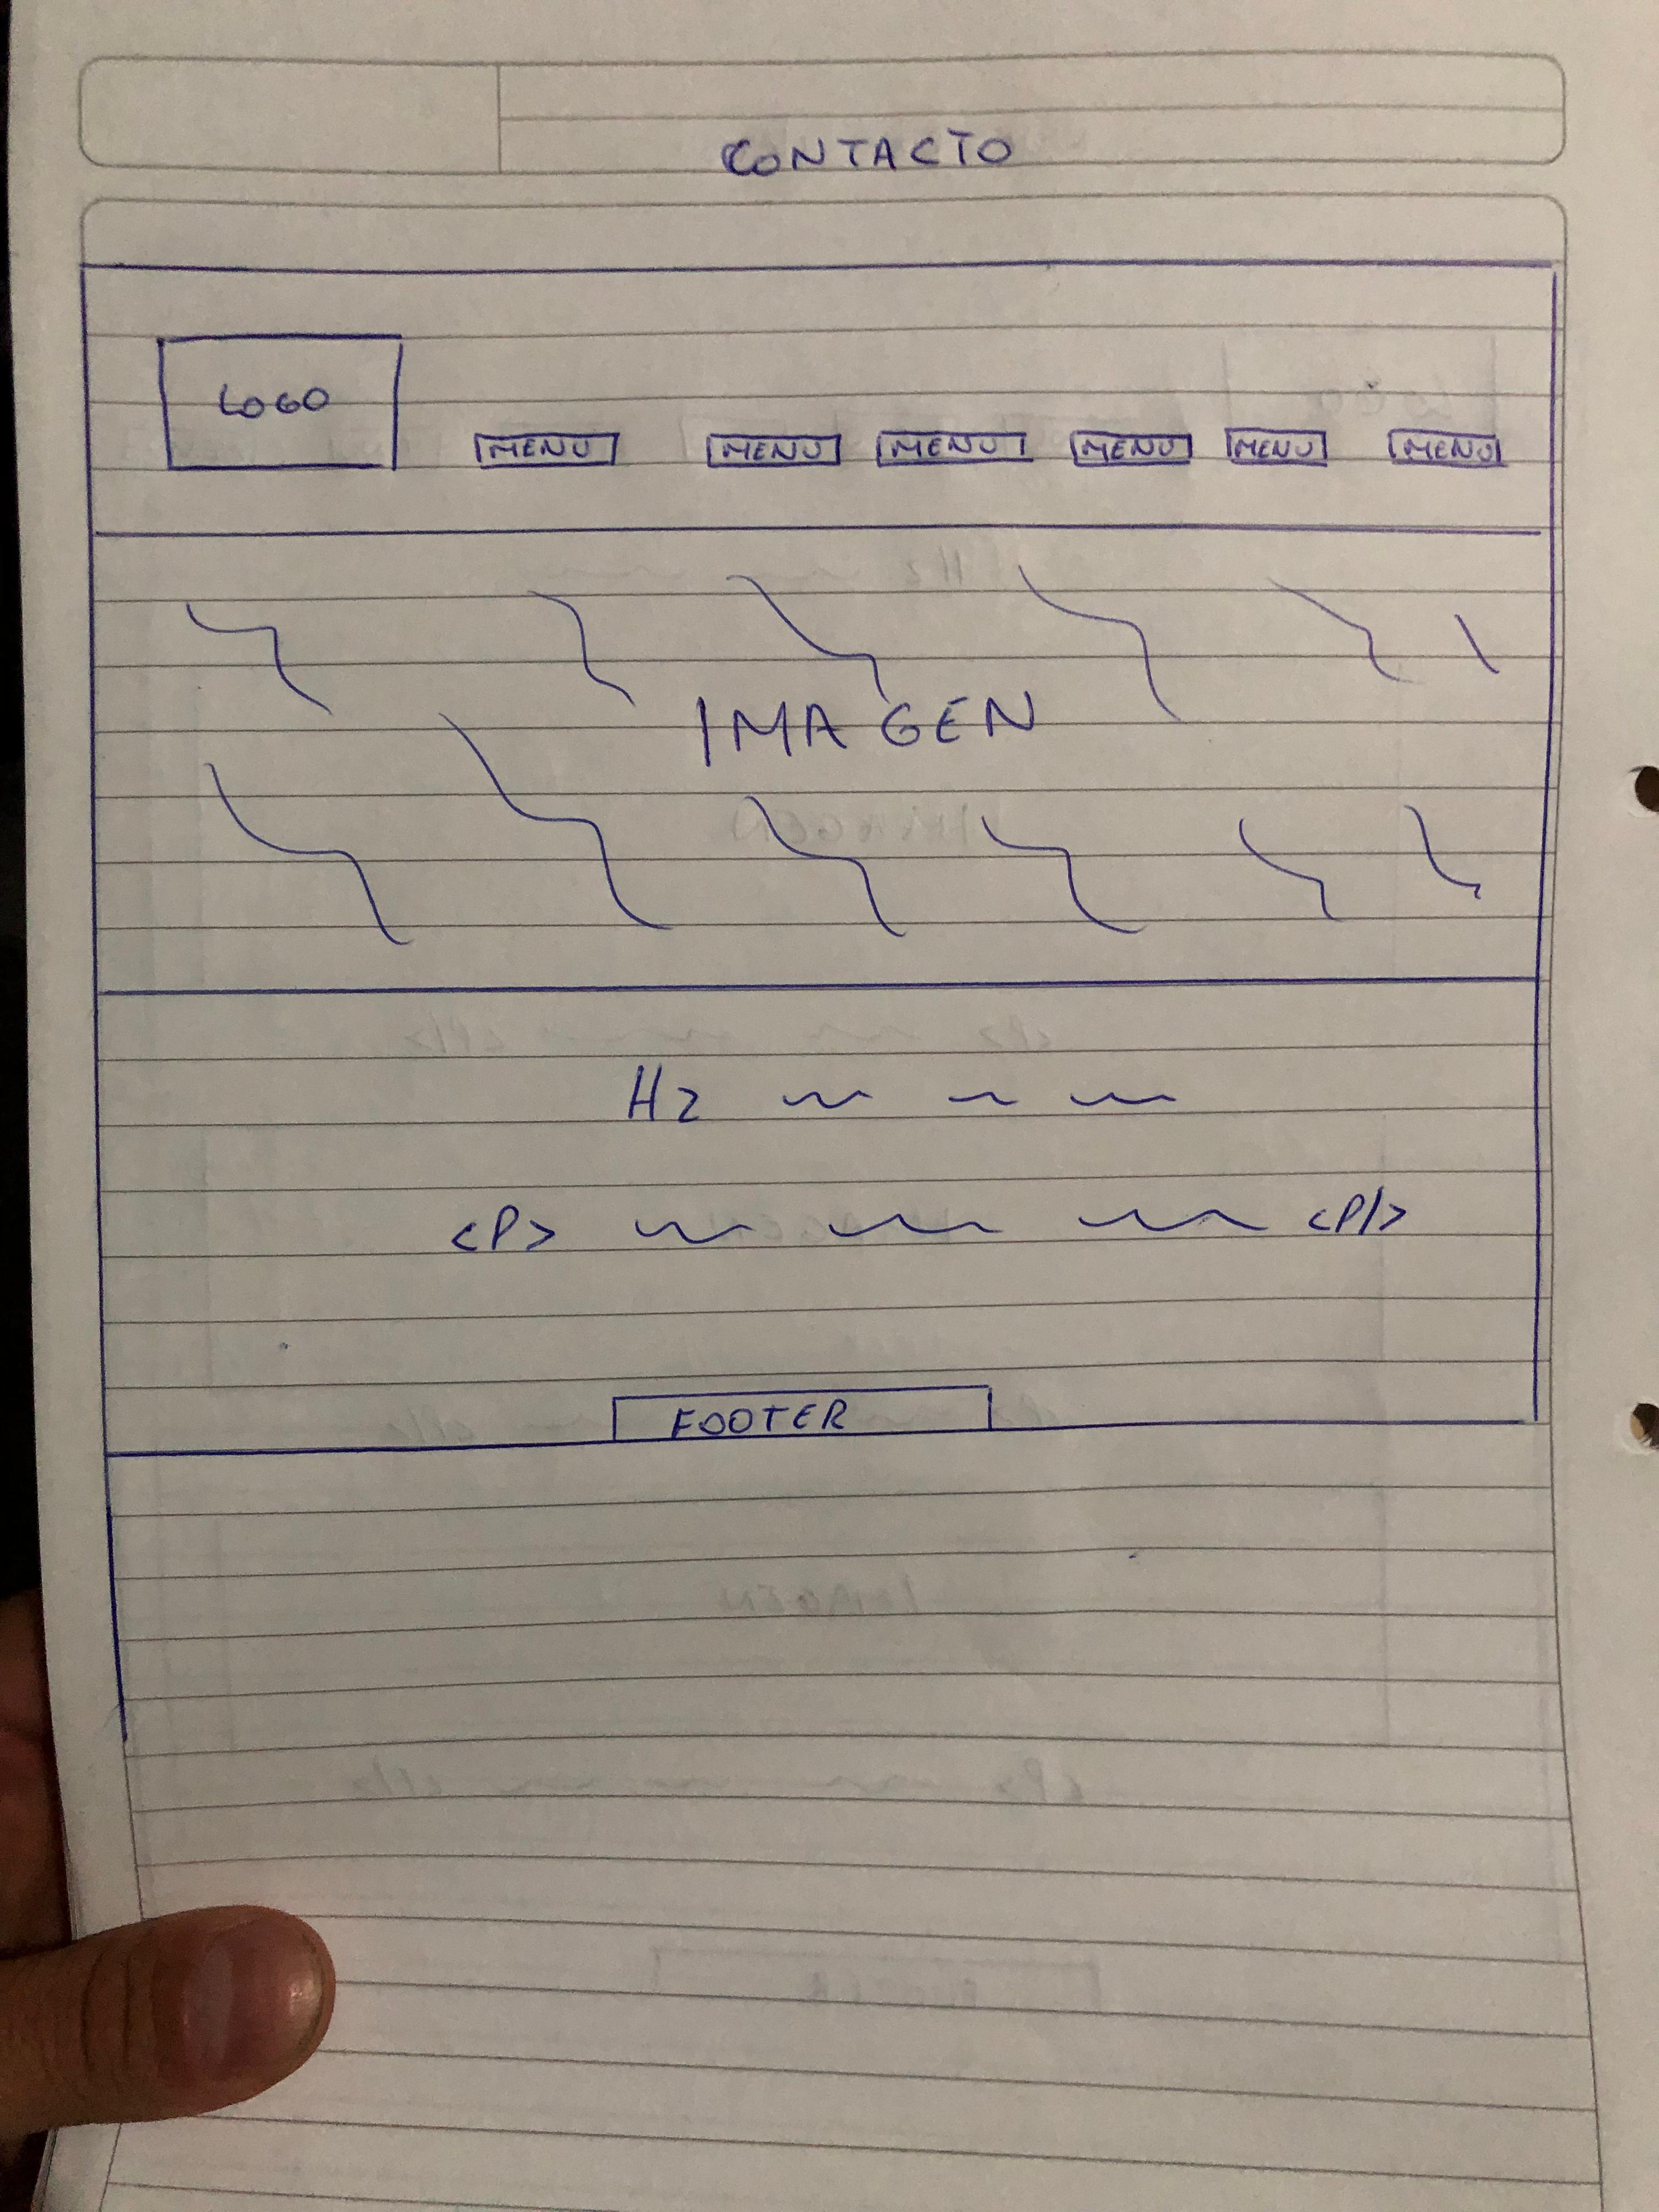 CONTACTO
LOGO
MENU MENU MENU MENU MENU MENU
IMAGEN
H2
<P> <P/>
FOOTER